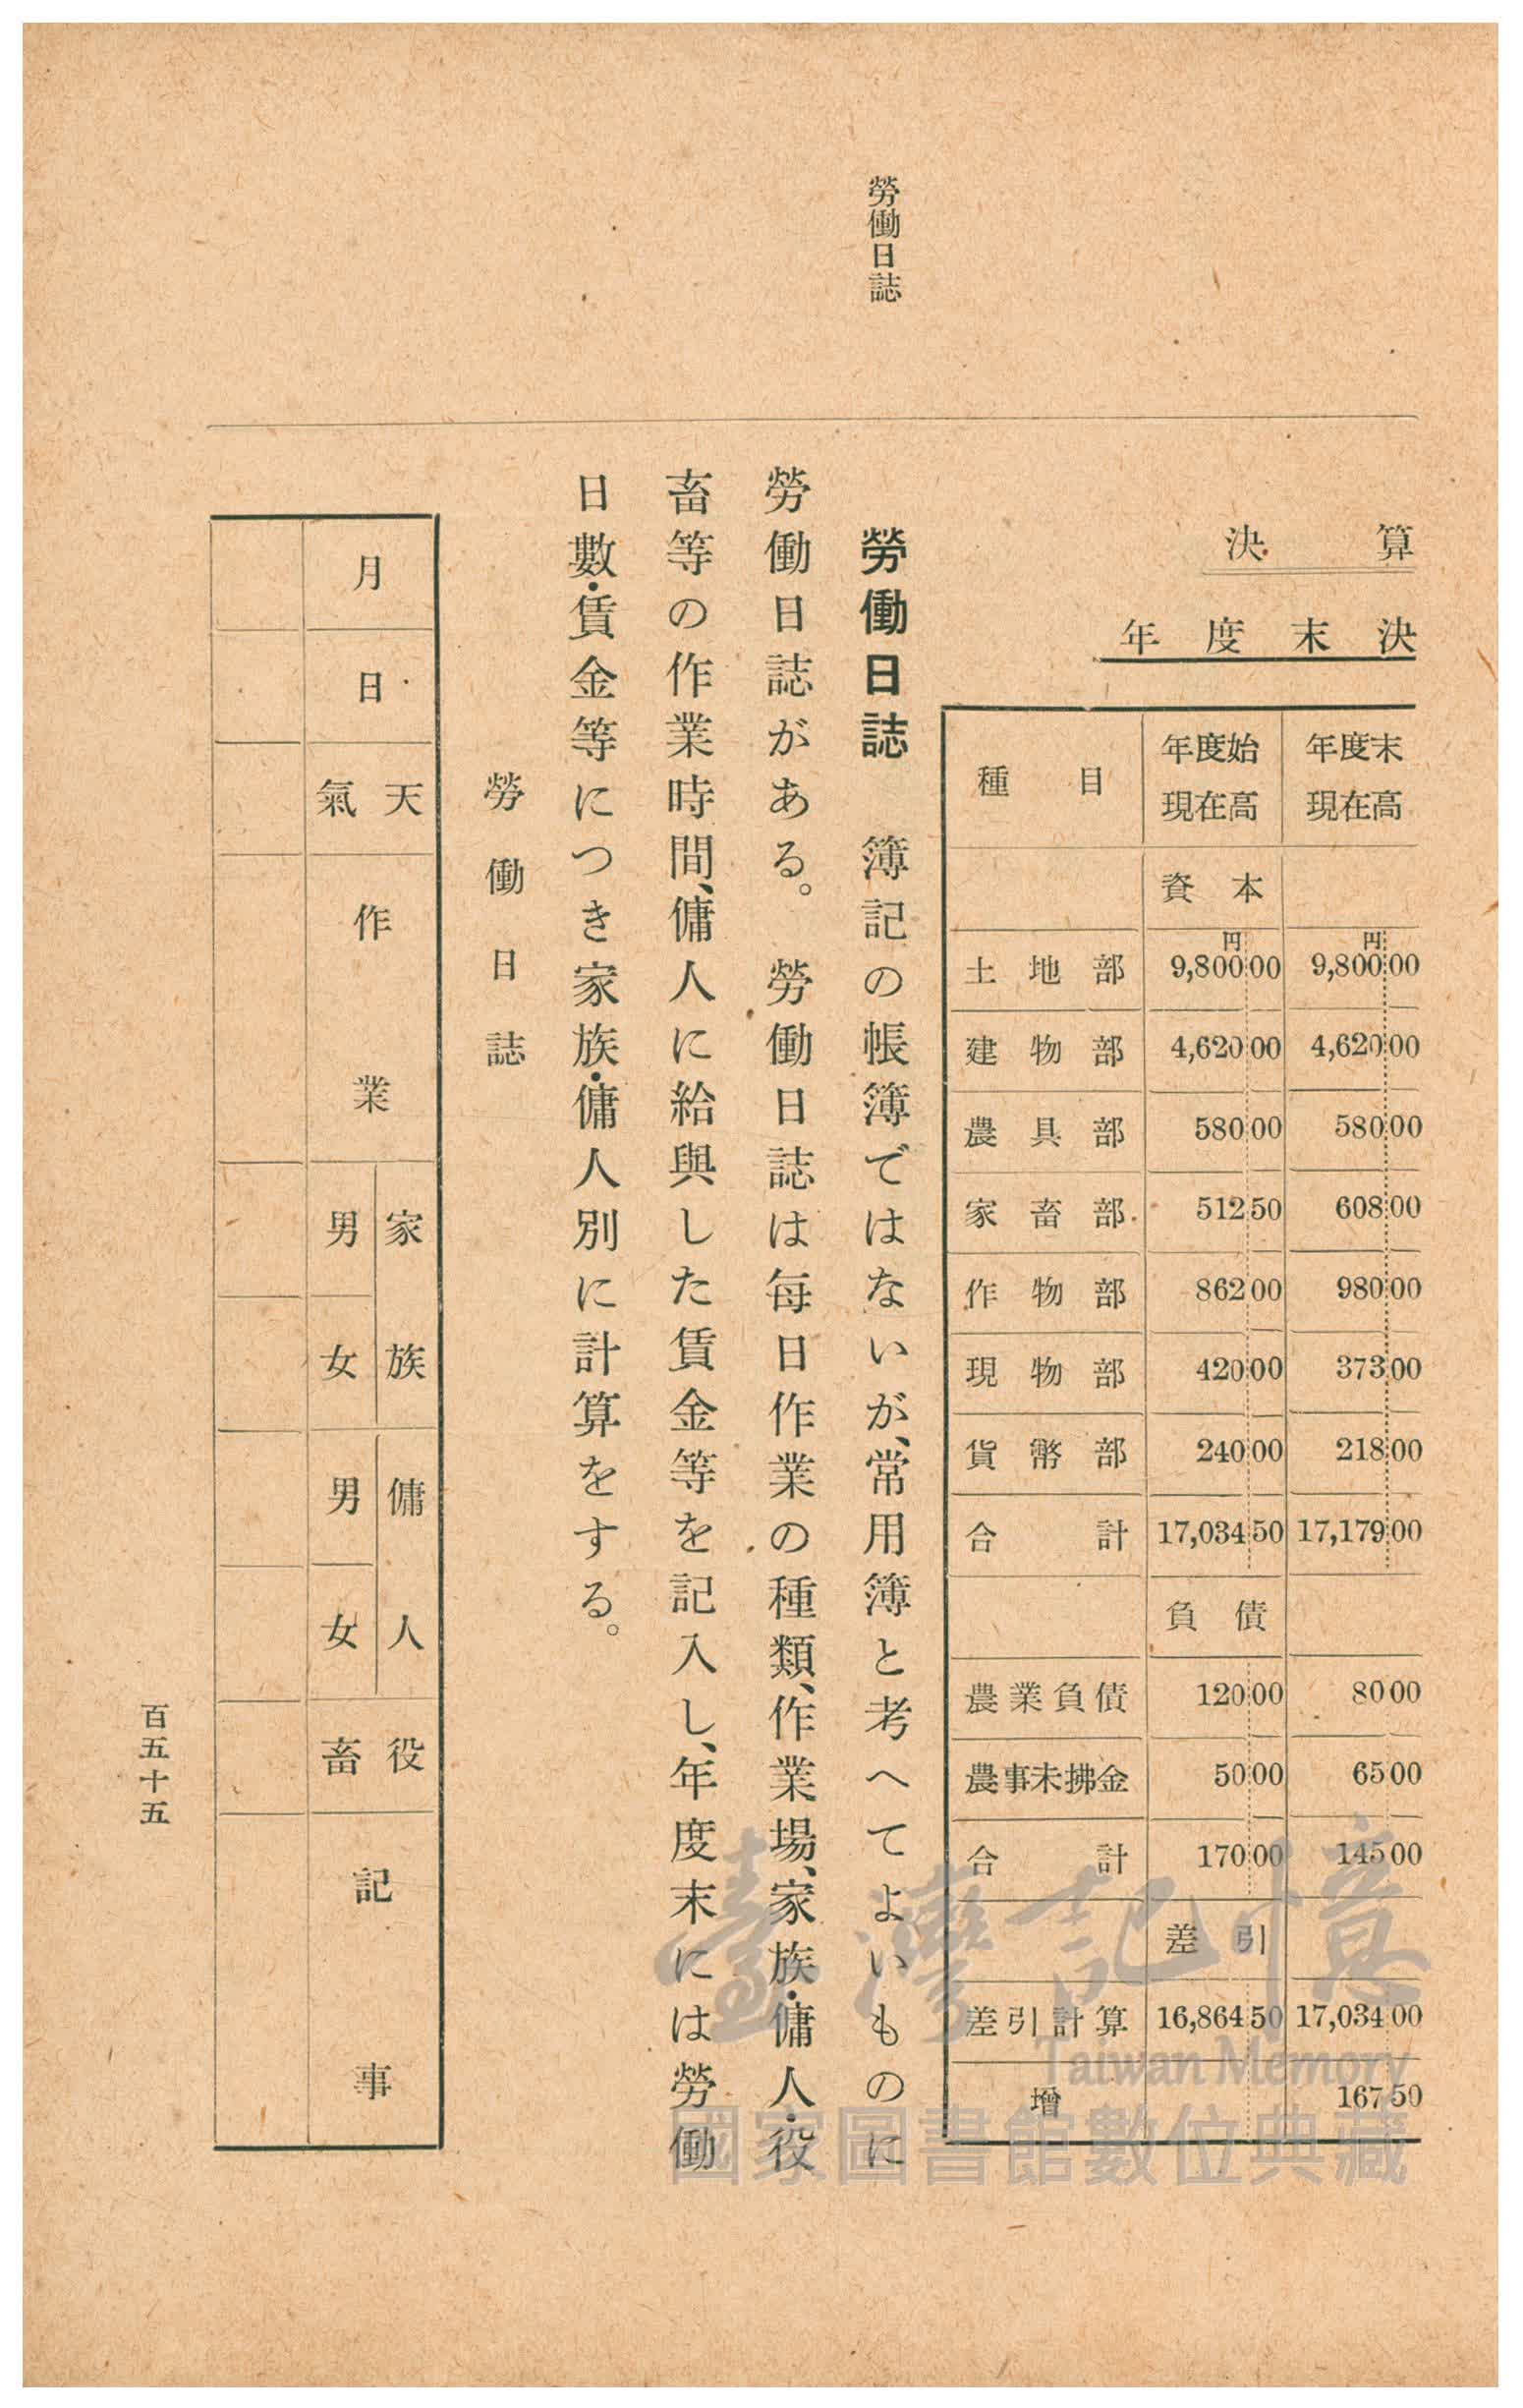 勞働日誌
決算
年度末決
種目 年度始現在高 年度末現在高
資本
土地部 9,800円00 9,800円00
建物部 4,620 00 4,620 00
農具部 580 00 580 00
家畜部 512 50 608 00
作物部 862 00 980 00
現物部 420 00 373 00
貨幣部 240 00 218 00
合計 17,034 50 17,179 00
負債
農業負債 120 00 80 00
農事未拂金 50 00 65 00
合計 170 00 145 00
差引
差引計算 16,864 50 17,034 00
增 167 50
勞働日誌 簿記の帳簿ではないが、常用簿と考へてよいものに
勞働日誌がある。 勞働日誌は每日作業の種類、作業場、家族・傭人・役
畜等の作業時間、傭人に給與した賃金等を記入し、年度末には勞働
日數・賃金等につき家族・傭人別に計算をする。
勞働日誌
月 日 天氣 作業 家族 男 女 傭人 男 女 役畜 記事
百五十五
臺灣記憶
Taiwan Memory
國家圖書館數位典藏